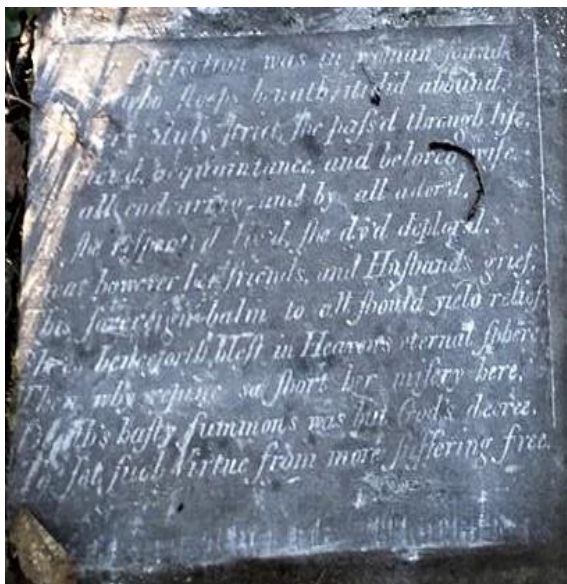 perfection was in woman found,
who ſleeps beneath, it did abound,
truly ſtrict, ſhe paſs'd through life,
acquaintance, and beloved wife.
all endearing, and by all ador'd,
ſhe reſpected liv'd, ſhe dy'd deplor'd.
however her friends, and Huſbands grief,
This ſovereign balm to all ſhould yield relief,
henceforth bleſt in Heavens eternal ſphere
Then why repine so ſhort her miſery here,
haſty ſummons was but God's decree,
To ſet ſuch Virtue from more ſuffering free.